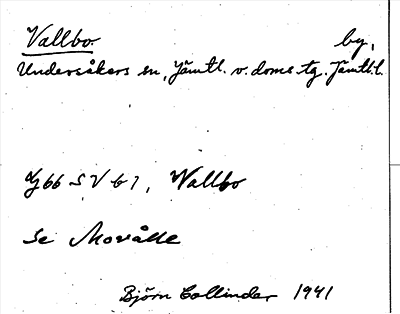 Vallbo. by,
Undersåkers sn, Jämtl. v. doms. tg. Jämtl. l.
Jg 66 S V b 7, Wallbo
Se Movålle
Björn Collinder 1941